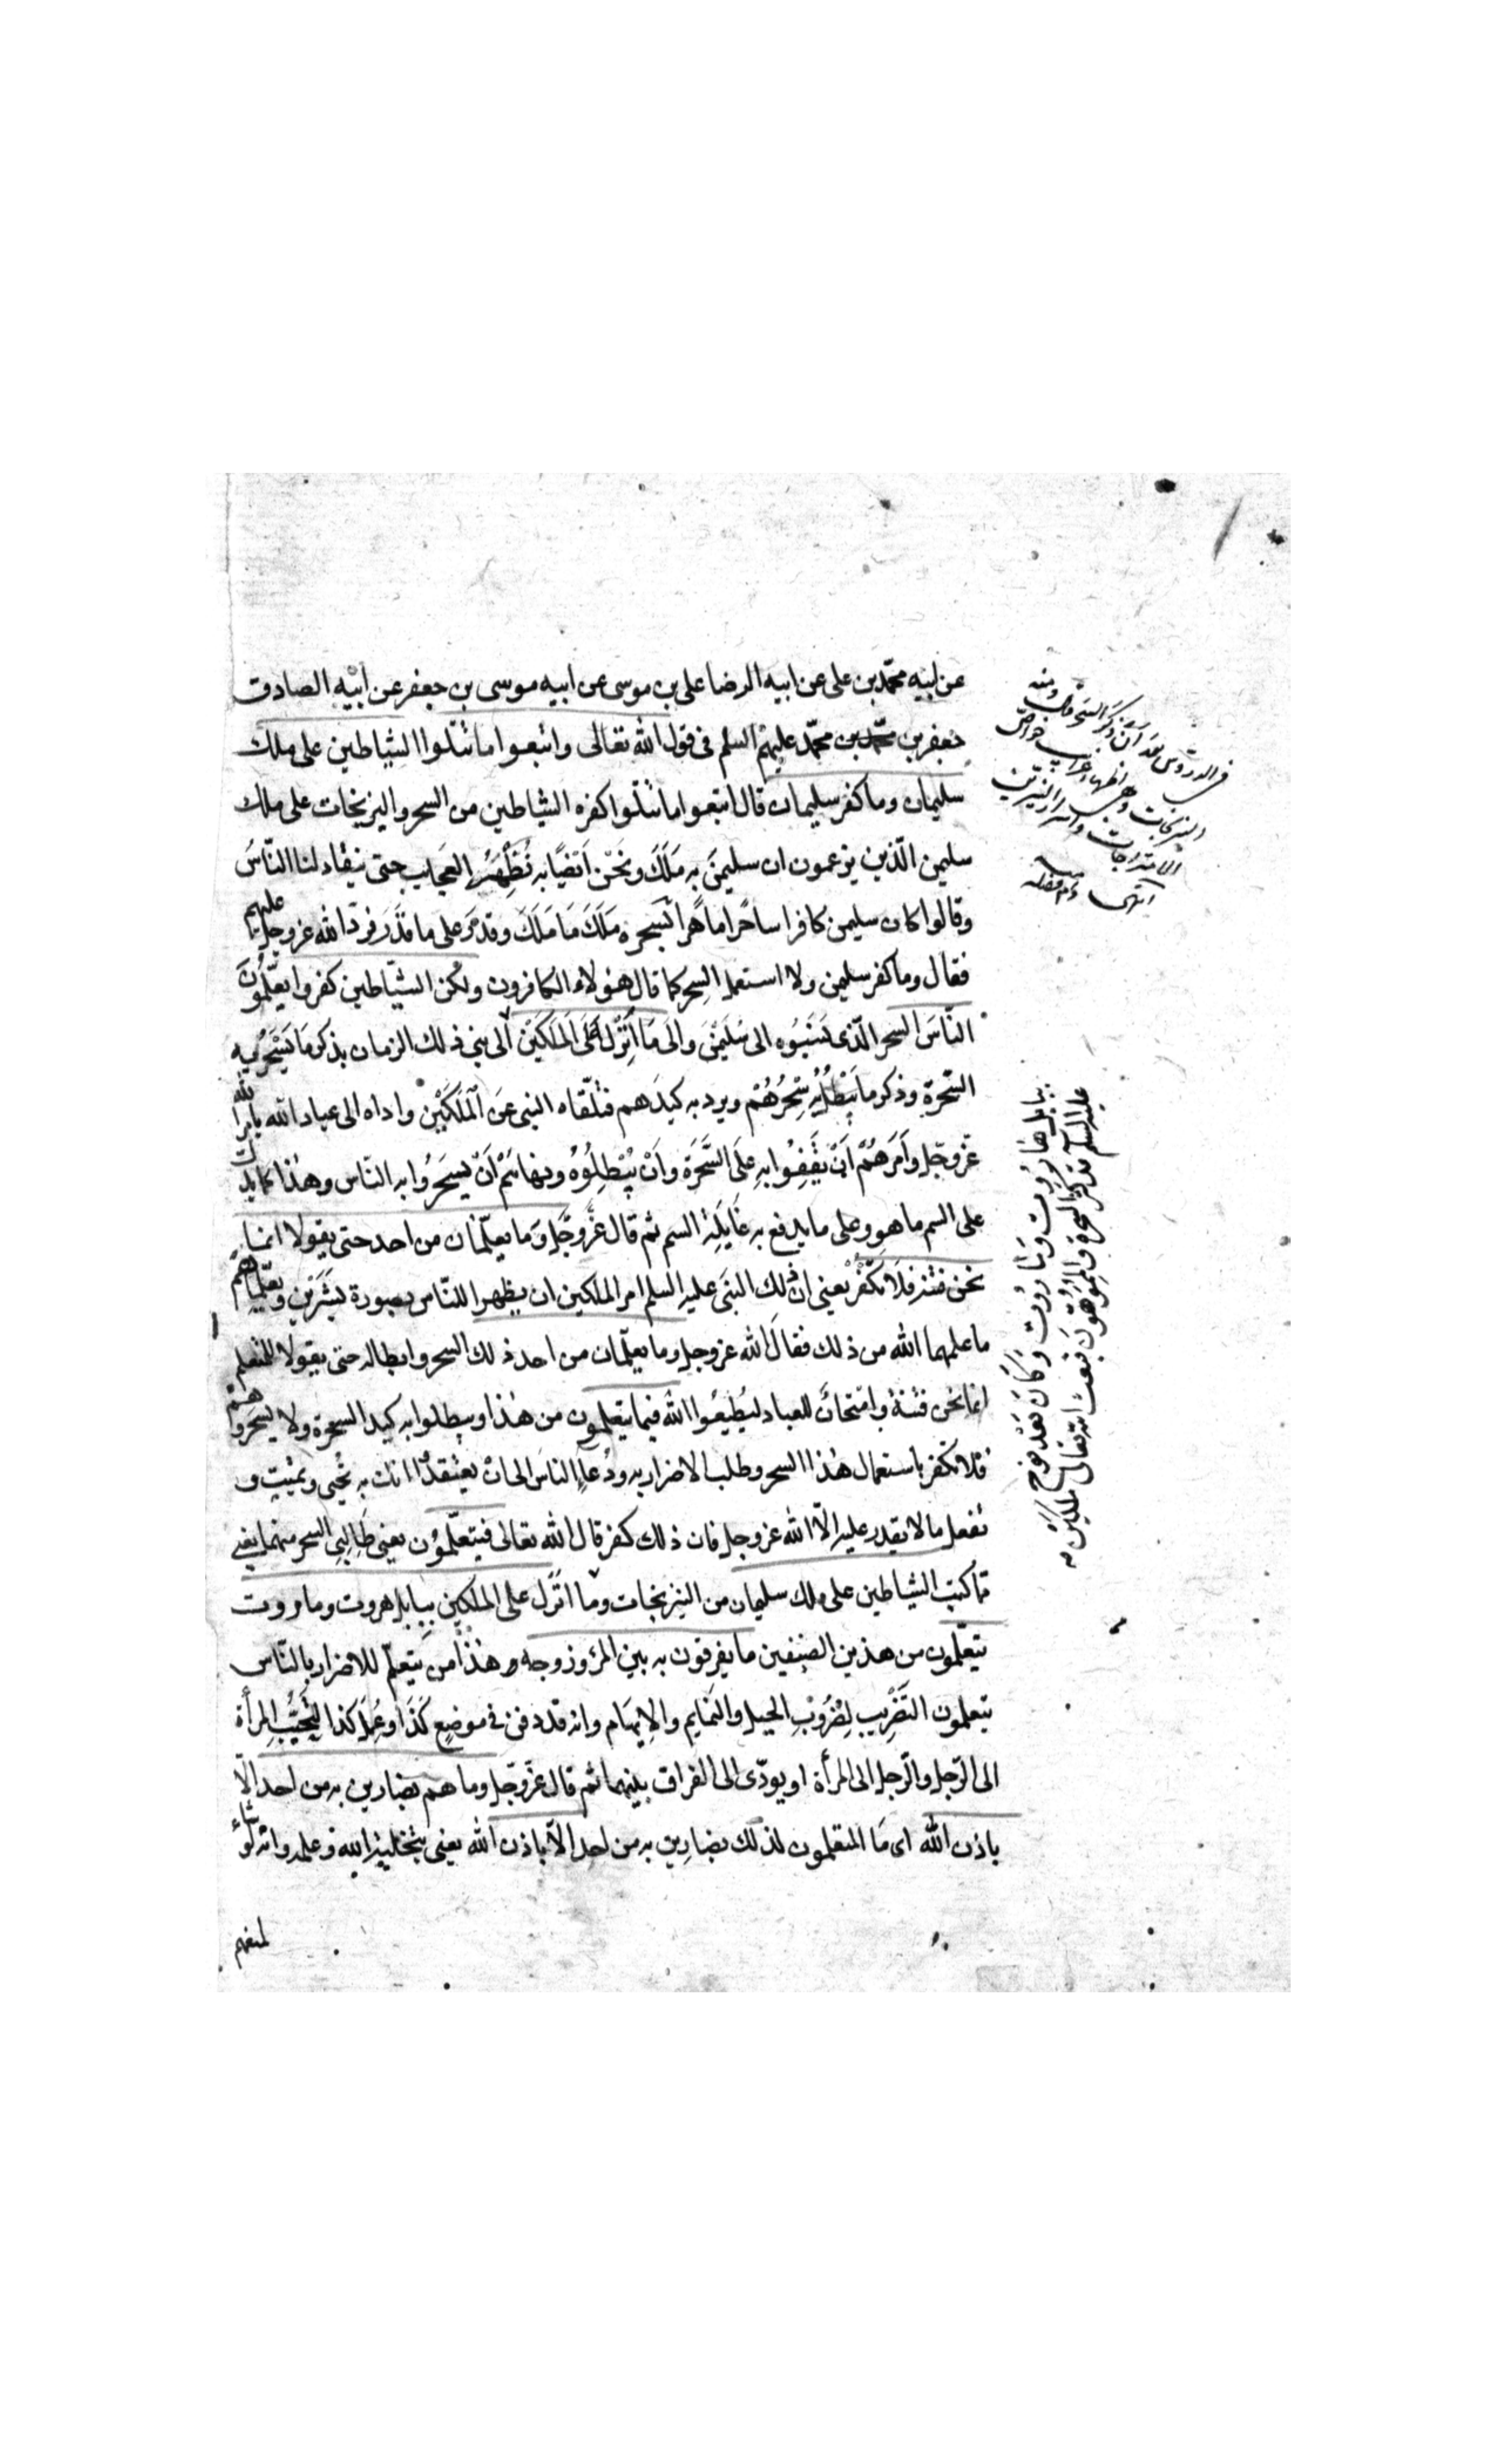 عن ابيه محمّد بن على عن ابيه الرضا على بن موسى عن ابيه موسى بن جعفر عن ابيه الصادق
جعفر بن محمّد بن محمّد عليهم السلم فى قول الله تعالى واتبعوا ما تتلوا الشياطين على ملك
سليمان وما كفر سليمان قال اتبعوا ما تتلوا كفرة الشياطين من السحر والنيرنجات على ملك
سليمن الّذين يزعمون ان سليمن به ملك ونحن ايضًا به نُظهر العجايب حتى ينقاد لنا النّاس
وقالوا كان سليمن كافرا ساحرا ماهرا بسحره ملك ما ملك وقدر على ما قدر فردّ الله عزوجل عليهم
فقال وما كفر سليمن ولا استعمل السحر كما قال هؤلاء الكافرون ولكن الشياطين كفروا يعلّمون
النّاس السحر الّذى نسبوه الى سليمن والى ما انزل على الملكين الى نبى ذلك الزمان بذكر ما يسحر به
السّحرة وذكر ما يبطل به سحرهم ويرد به كيدهم فتلقّاه النبى عن الملكين واداه الى عباد الله بامر الله
عزّوجل وامرهم ان يقفوا به على السّحرة وان يبطلوه ونهاهم ان يسحروا به النّاس وهذا كما يدل
على السم ما هو وعلى ما يدفع به غايلة السم ثم قال عزّوجل وما يعلّمان من احد حتى يقولا انما
نحن فتنة فلا تكفر يعنى ان ذلك النبى عليه السلم امر الملكين ان يظهرا للنّاس بصورة بشرين ويعلّماهم
ما علمهما الله من ذلك فقال الله عزوجل وما يعلّمان من احد ذلك السحر وابطاله حتى يقولا للمتعلم
انما نحن فتنة وامتحان للعباد ليطيعوا الله فيما يتعلمون من هذا ويبطلوا به كيد السحرة ولا يسحروا هم
فلا تكفر باستعمال هذا السحر وطلب الاضرار به ودعاء الناس الى ان يعتقدوا انك به تحيى وتميت و
تفعل ما لا يقدر عليه الّا الله عزوجل فان ذلك كفر قال الله تعالى فيتعلّمون يعنى طالبى السحر منهما يعنى
مما كتب الشياطين على ملك سليمان من النيرنجات وما انزل على الملكين ببابل هروت وماروت
يتعلّمون من هذين الصنفين ما يفرقون به بين المرء وزوجه هذا من يتعلّم للاضرار بالنّاس
يتعلمون التضريب بضروب الحيل والنمايم والايهام وانه قد دفن فى موضع كذا وعمل كذا ليحبّب المرأة
الى الرّجل والرّجل الى المرأة او يودّى الى الفراق بينهما ثم قال عزّوجل وما هم بضارين به من احد الّا
باذن الله اى ما المتعلمون لذلك بضارين به من احد الّا باذن الله يعنى بتخلية الله وعلمه وانه لو شاء
لمنعهم
ببابل هاروت وماروت وكان بعد نوح
عليه السلم قد كثر السحرة والمموّهون فبعث الله تعالى ملكين